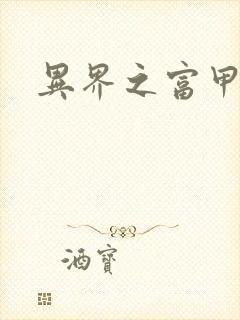 異界之富甲
酒寶